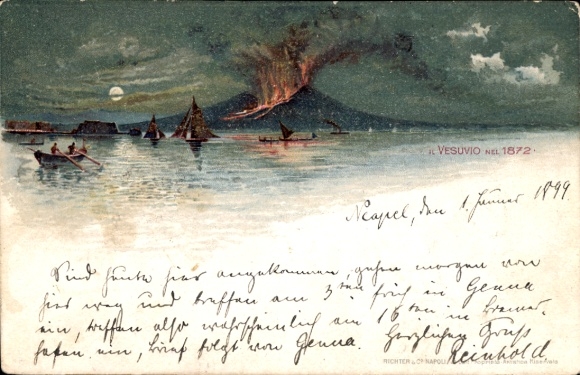 IL VESUVIO NEL 1872.
Neapel, den 1. Januar 1899
Sind heute hier angekommen, gehen morgen von
hier weg und treffen am 3ten früh in Genua
ein, treffen also wahrscheinlich am 16ten in Bremer-
hafen ein, Brief folgt von Genua. Herzlichen Gruß
Reinhold
RICHTER & Co NAPOLI